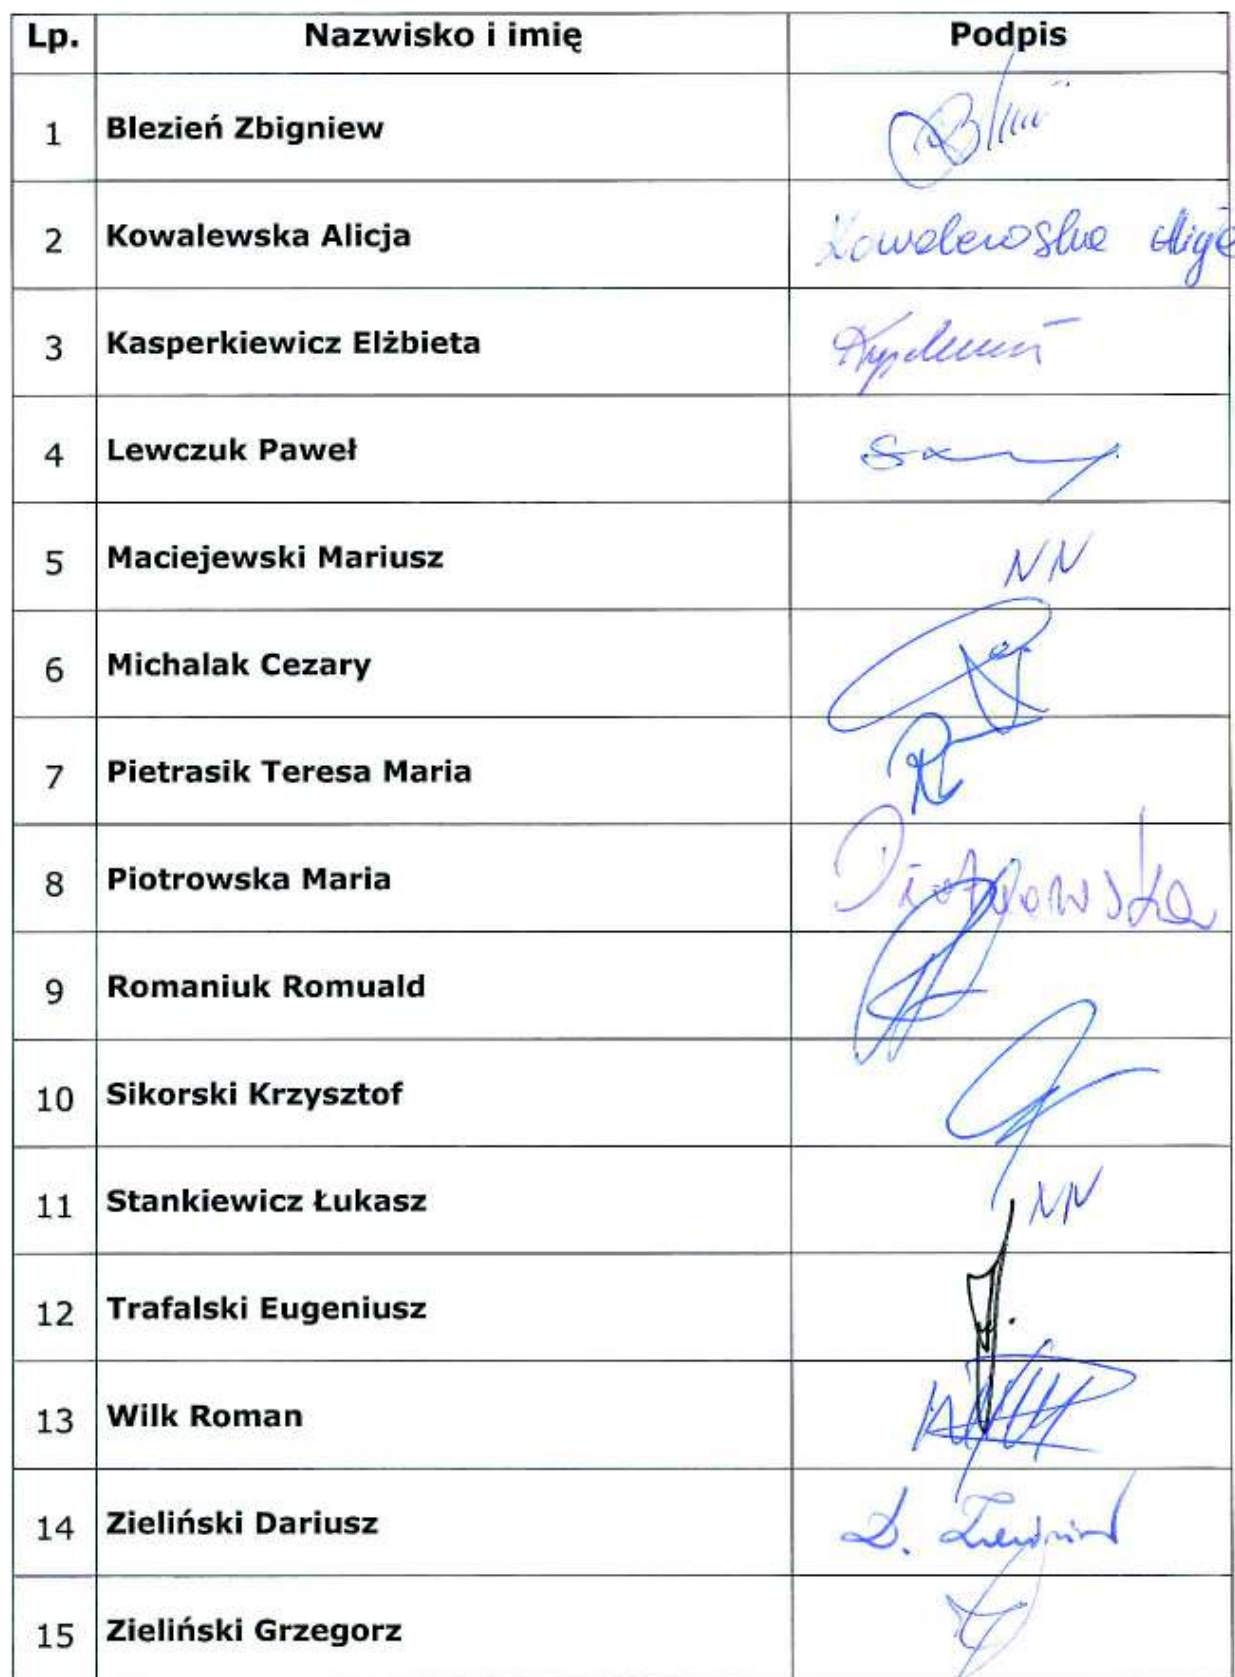 Lp. Nazwisko i imię Podpis
1 Blezień Zbigniew
2 Kowalewska Alicja Kowalewska
3 Kasperkiewicz Elżbieta
4 Lewczuk Paweł
5 Maciejewski Mariusz NN
6 Michalak Cezary
7 Pietrasik Teresa Maria
8 Piotrowska Maria Piotrowska
9 Romaniuk Romuald
10 Sikorski Krzysztof
11 Stankiewicz Łukasz NN
12 Trafalski Eugeniusz
13 Wilk Roman
14 Zieliński Dariusz D.
15 Zieliński Grzegorz